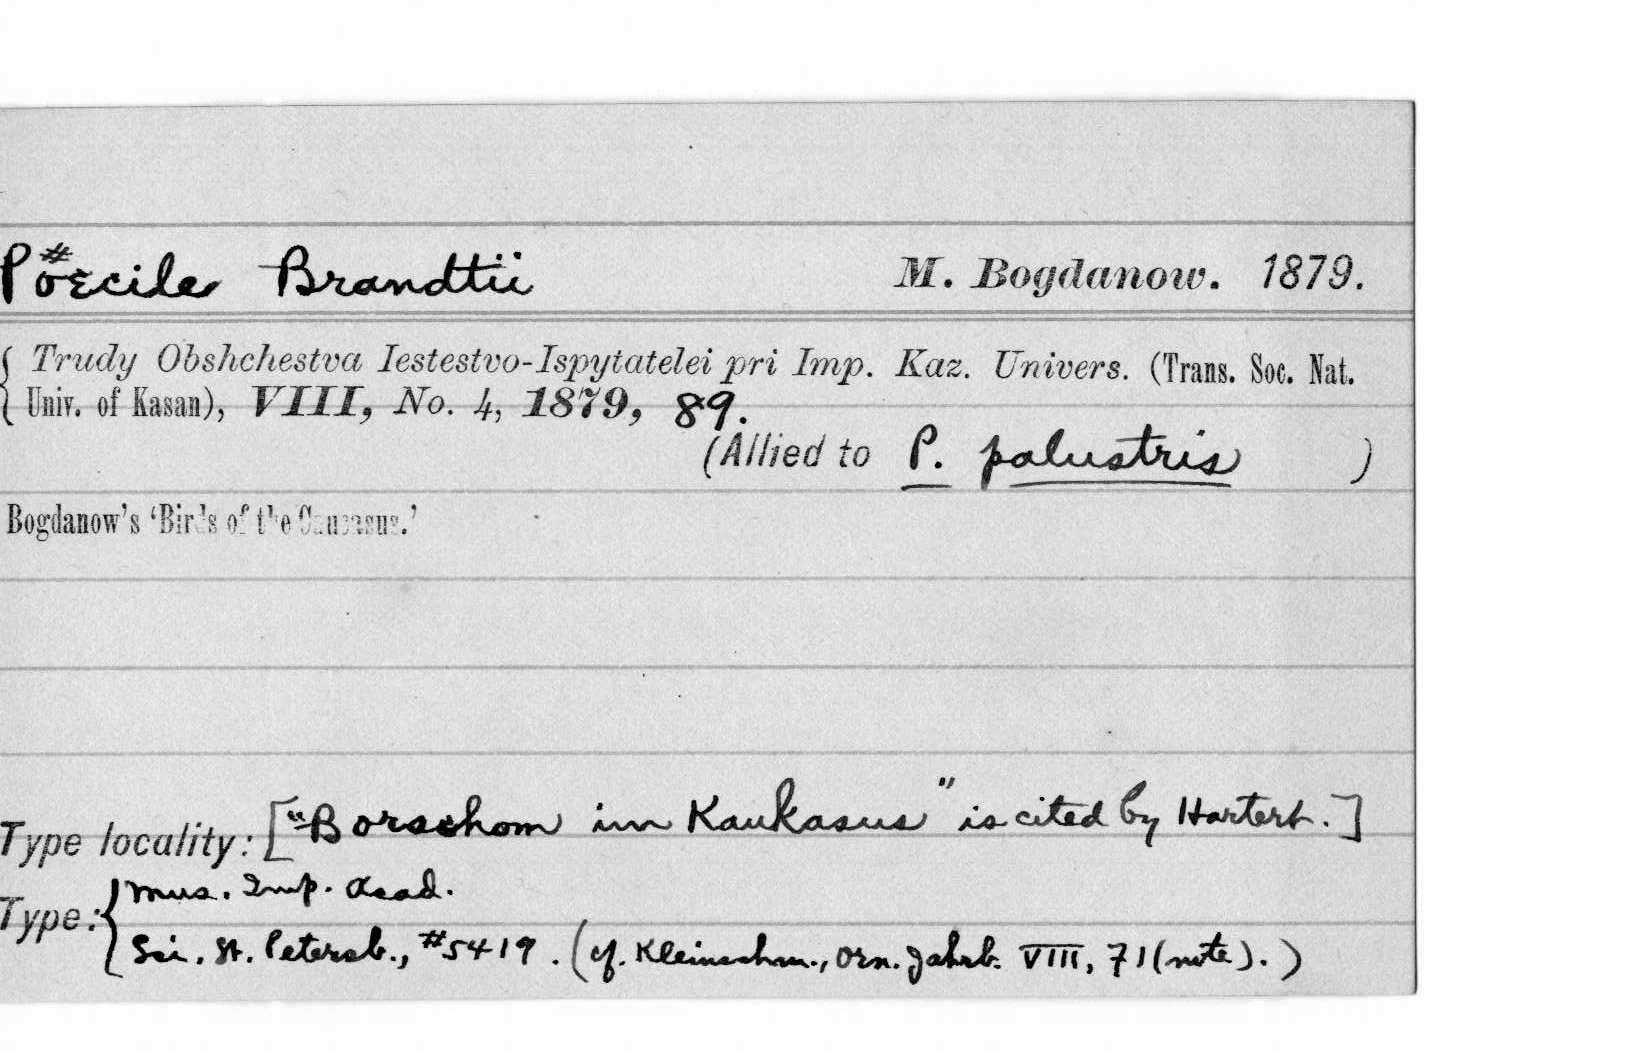 Pöecile Brandtii M. Bogdanow. 1879.
#
{ Trudy Obshchestva Iestestvo-Ispytatelei pri Imp. Kaz. Univers. (Trans. Soc. Nat.
Univ. of Kasan), VIII, No. 4, 1879, 89.
(Allied to P. palustris )
Bogdanow's 'Birds of the Caucasus.'
Type locality: ["Borschom im Kaukasus" is cited by Hartert.]
Type: { Mus. Imp. Acad.
Sci. St. Petersb., #5419. (cf. Kleinschm., Orn. Jahrb. VIII, 71 (note).)